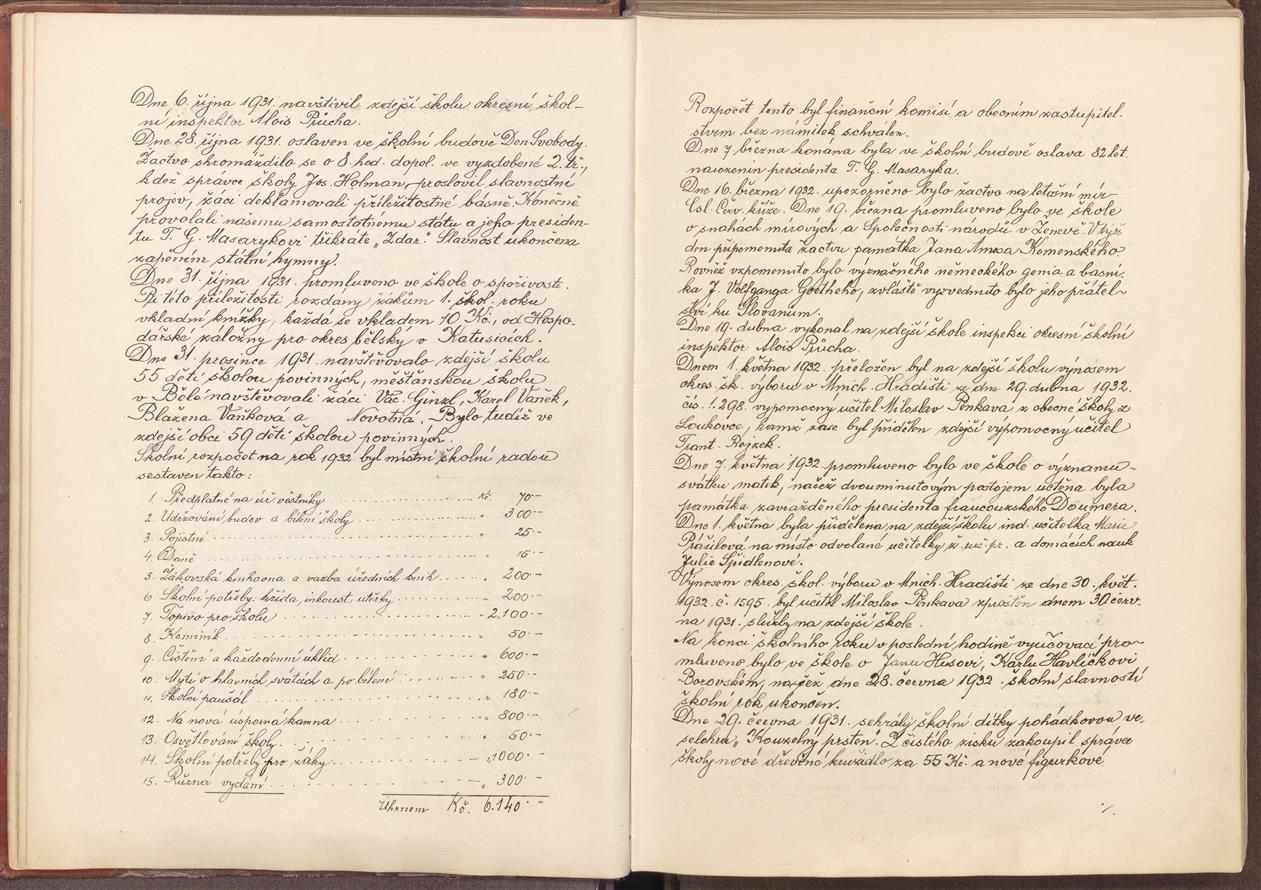 Dne 6. října 1931. navštívil zdejší školu okresní škol-
ní inspektor Alois Průcha.
Dne 28. října 1931. oslaven ve školní budově Den Svobody.
Žactvo shromáždilo se o 8. hod. dopol. ve vyzdobené 2. tř.,
kdež správce školy Jos. Holman, proslovil slavnostní
projev, žáci deklamovali příležitostné básně. Konečně
provolali našemu samostatnému státu a jeho presiden-
tu T. G. Masarykovi třikráte „Zdar." Slavnost ukončena
zapěním státní hymny.
Dne 31. října 1931. promluveno ve škole o spořivosti.
Při této příležitosti rozdány žákům 1. škol. roku
vkladní knížky, každá se vkladem 10 Kč., od Hospo-
dářské záložny pro okres bělský v Katusicích.
Dne 31. prosince 1931. navštěvovalo zdejší školu
55 dětí školou povinných, měšťanskou školu
v Bělé navštěvovali žáci Vác. Ginzl, Karel Vaněk,
Blažena Vaňková a Novotná. Bylo tudíž ve
zdejší obci 59 dětí školou povinných.
Školní rozpočet na rok 1932. byl místní školní radou
sestaven takto:
1. Předplatné na úř. věstníky Kč. 70·–
2. Udržování budov a bílení školy „ 300·–
3. Pojistné „ 25·–
4. Daně „ 15·–
5. Žákovská knihovna a vazba úředních knih „ 200·–
6. Školní potřeby: křída, inkoust, utěrky „ 200·–
7. Topivo pro školu „ 2.100·–
8. Kominík „ 50·–
9. Čistění a každodenní úklid „ 600·–
10. Mytí o hlavních svátcích a po bílení „ 250·–
11. Školní paušál „ 180·–
12. Na nová úsporná kamna „ 800·–
13. Osvětlování školy „ 50·–
14. Školní potřeby pro žáky „ 1000·–
15. Různá vydání „ 300·–
Úhrnem Kč. 6.140·–
Rozpočet tento byl finanční komisí a obecním zastupitel-
stvem bez námitek schválen.
Dne 7. března konána byla ve školní budově oslava 82 let.
narozenin presidenta T. G. Masaryka.
Dne 16. března 1932. upozorněno bylo žactvo na letošní mír
Čsl. Červ. kříže. Dne 19. března promluveno bylo ve škole
o snahách mírových a Společnosti národů v Ženevě. V týž
den připomenuta žactvu památka Jana Amosa Komenského.
Rovněž vzpomenuto bylo význačného německého genia a básní-
ka J. Volfganga Goetheho, zvláště vyzvednuto bylo jeho přátel-
ství ku Slovanům.
Dne 19. dubna vykonal na zdejší škole inspekci okresní školní
inspektor Alois Průcha.
Dnem 1. května 1932. přeložen byl na zdejší školu výnosem
okres. šk. výboru v Mnich. Hradišti ze dne 29. dubna 1932.
čís. 1.298. vypomocný učitel Miloslav Penkava z obecné školy z
Loukovce, kamž zase byl přidělen zdejší výpomocný učitel
Frant. Rejzek.
Dne 7. května 1932. promluveno bylo ve škole o významu
svátku matek, načež dvouminutovým postojem uctěna byla
památka zavražděného presidenta francouzského Doumera.
Dne 1. května byla přidělena na zdejší školu ind. učitelka Marie
Prášilová na místo odvolané učitelky ž. ruč. pr. a domácích nauk
Julie Špidlenové.
Výnosem okres. škol. výboru v Mnich. Hradišti ze dne 30. květ.
1932. č. 1595. byl učitel Miloslav Penkava zproštěn dnem 30. červ-
na 1931. služby na zdejší škole.
Na konci školního roku v poslední hodině vyučovací pro-
mluveno bylo ve škole o Janu Husovi, Karlu Havlíčkovi
Borovském, načež dne 28. června 1932. školní slavností
školní rok ukončen.
Dne 29. června 1931. sehrály školní dítky pohádkovou ve-
selohru „Kouzelný prsten". Z čistého zisku zakoupil správce
školy nové dřevěné kružidlo za 55 Kč. a nové figurkové
./.